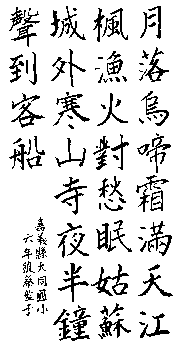 月落烏啼霜滿天江
楓漁火對愁眠姑蘇
城外寒山寺夜半鐘
聲到客船
嘉義縣大同國小
六年級蔡